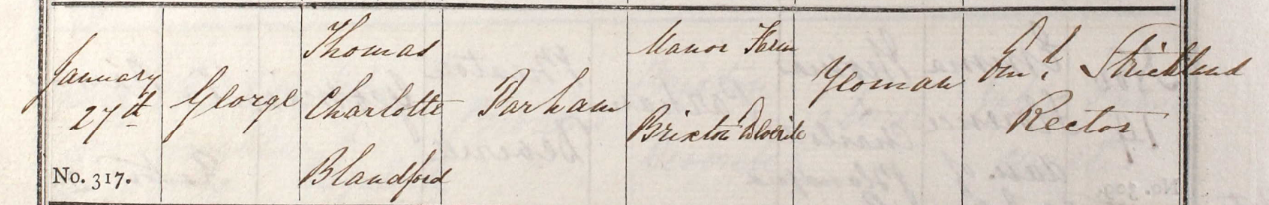 January
27th
No. 317.
George
Thomas
Charlotte
Blandford
Parham
Manor Farm
Brixton Deverill
Yeoman
Em.l Strickland
Rector